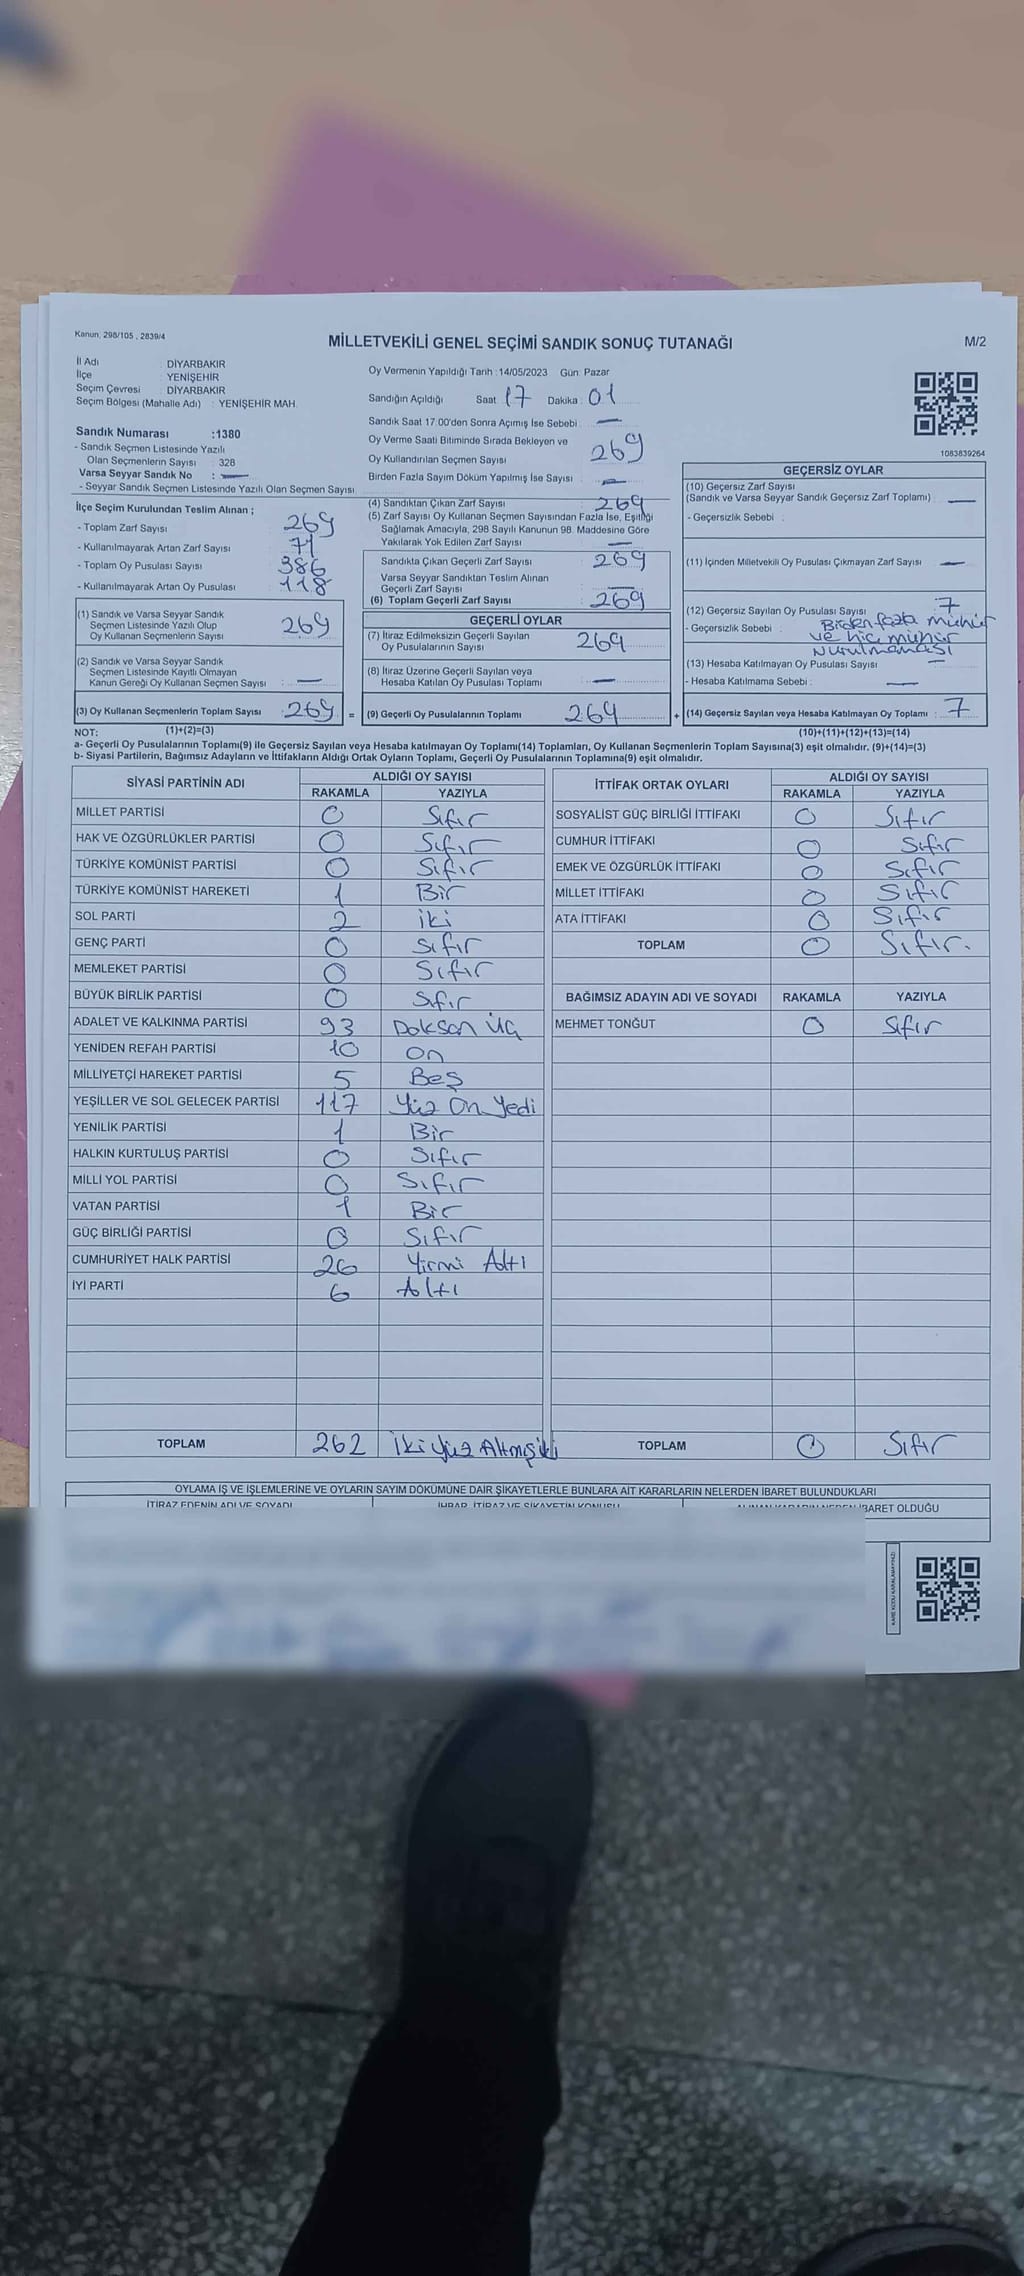 Kanun, 298/105 , 2839/4
MİLLETVEKİLİ GENEL SEÇİMİ SANDIK SONUÇ TUTANAĞI
M/2
İl Adı : DİYARBAKIR
İlçe : YENİŞEHİR
Seçim Çevresi : DİYARBAKIR
Seçim Bölgesi (Mahalle Adı) : YENİŞEHİR MAH.
Sandık Numarası :1380
- Sandık Seçmen Listesinde Yazılı
Olan Seçmenlerin Sayısı : 328
Varsa Seyyar Sandık No : —
- Seyyar Sandık Seçmen Listesinde Yazılı Olan Seçmen Sayısı
Oy Vermenin Yapıldığı Tarih :14/05/2023 Gün: Pazar
Sandığın Açıldığı Saat 17 Dakika : 01
Sandık Saat 17:00'den Sonra Açımış İse Sebebi : —
Oy Verme Saati Bitiminde Sırada Bekleyen ve
Oy Kullandırılan Seçmen Sayısı : 269
Birden Fazla Sayım Döküm Yapılmış İse Sayısı : —
1083839264
İlçe Seçim Kurulundan Teslim Alınan ;
- Toplam Zarf Sayısı : 269
- Kullanılmayarak Artan Zarf Sayısı : 71
- Toplam Oy Pusulası Sayısı : 386
- Kullanılmayarak Artan Oy Pusulası : 118
(1) Sandık ve Varsa Seyyar Sandık
Seçmen Listesinde Yazılı Olup
Oy Kullanan Seçmenlerin Sayısı : 269
(2) Sandık ve Varsa Seyyar Sandık
Seçmen Listesinde Kayıtlı Olmayan
Kanun Gereği Oy Kullanan Seçmen Sayısı : —
(3) Oy Kullanan Seçmenlerin Toplam Sayısı : 269 =
(4) Sandıktan Çıkan Zarf Sayısı : 269
(5) Zarf Sayısı Oy Kullanan Seçmen Sayısından Fazla İse, Eşitliği
Sağlamak Amacıyla, 298 Sayılı Kanunun 98. Maddesine Göre
Yakılarak Yok Edilen Zarf Sayısı : —
Sandıkta Çıkan Geçerli Zarf Sayısı : 269
Varsa Seyyar Sandıktan Teslim Alınan
Geçerli Zarf Sayısı : —
(6) Toplam Geçerli Zarf Sayısı : 269
GEÇERLİ OYLAR
(7) İtiraz Edilmeksizin Geçerli Sayılan
Oy Pusulalarının Sayısı : 269
(8) İtiraz Üzerine Geçerli Sayılan veya
Hesaba Katılan Oy Pusulası Toplamı : —
(9) Geçerli Oy Pusulalarının Toplamı : 269 +
GEÇERSİZ OYLAR
(10) Geçersiz Zarf Sayısı
(Sandık ve Varsa Seyyar Sandık Geçersiz Zarf Toplamı) : —
- Geçersizlik Sebebi :
(11) İçinden Milletvekili Oy Pusulası Çıkmayan Zarf Sayısı : —
(12) Geçersiz Sayılan Oy Pusulası Sayısı : 7
- Geçersizlik Sebebi : Birden fazla mühür
ve hiç mühür
(13) Hesaba Katılmayan Oy Pusulası Sayısı : —
- Hesaba Katılmama Sebebi : —
(14) Geçersiz Sayılan veya Hesaba Katılmayan Oy Toplamı : 7
NOT: (1)+(2)=(3) (10)+(11)+(12)+(13)=(14)
a- Geçerli Oy Pusulalarının Toplamı(9) ile Geçersiz Sayılan veya Hesaba katılmayan Oy Toplamı(14) Toplamları, Oy Kullanan Seçmenlerin Toplam Sayısına(3) eşit olmalıdır. (9)+(14)=(3)
b- Siyasi Partilerin, Bağımsız Adayların ve İttifakların Aldığı Ortak Oyların Toplamı, Geçerli Oy Pusulalarının Toplamına(9) eşit olmalıdır.
SİYASİ PARTİNİN ADI ALDIĞI OY SAYISI
RAKAMLA YAZIYLA
MİLLET PARTİSİ 0 Sıfır
HAK VE ÖZGÜRLÜKLER PARTİSİ 0 Sıfır
TÜRKİYE KOMÜNİST PARTİSİ 0 Sıfır
TÜRKİYE KOMÜNİST HAREKETİ 1 Bir
SOL PARTİ 2 iki
GENÇ PARTİ 0 Sıfır
MEMLEKET PARTİSİ 0 Sıfır
BÜYÜK BİRLİK PARTİSİ 0 Sıfır
ADALET VE KALKINMA PARTİSİ 93 Doksan Üç
YENİDEN REFAH PARTİSİ 10 On
MİLLİYETÇİ HAREKET PARTİSİ 5 Beş
YEŞİLLER VE SOL GELECEK PARTİSİ 117 Yüz On Yedi
YENİLİK PARTİSİ 1 Bir
HALKIN KURTULUŞ PARTİSİ 0 Sıfır
MİLLİ YOL PARTİSİ 0 Sıfır
VATAN PARTİSİ 1 Bir
GÜÇ BİRLİĞİ PARTİSİ 0 Sıfır
CUMHURİYET HALK PARTİSİ 26 Yirmi Altı
İYİ PARTİ 6 Altı
TOPLAM 262 İki Yüz Altmış iki
İTTİFAK ORTAK OYLARI ALDIĞI OY SAYISI
RAKAMLA YAZIYLA
SOSYALİST GÜÇ BİRLİĞİ İTTİFAKI 0 Sıfır
CUMHUR İTTİFAKI 0 Sıfır
EMEK VE ÖZGÜRLÜK İTTİFAKI 0 Sıfır
MİLLET İTTİFAKI 0 Sıfır
ATA İTTİFAKI 0 Sıfır
TOPLAM 0 Sıfır.
BAĞIMSIZ ADAYIN ADI VE SOYADI RAKAMLA YAZIYLA
MEHMET TONĞUT 0 Sıfır
TOPLAM 0 Sıfır
OYLAMA İŞ VE İŞLEMLERİNE VE OYLARIN SAYIM DÖKÜMÜNE DAİR ŞİKAYETLERLE BUNLARA AİT KARARLARIN NELERDEN İBARET BULUNDUKLARI
İTİRAZ EDENİN ADI VE SOYADI İHBAR, İTİRAZ VE ŞİKAYETİN KONUSU ALINAN KARARIN NEDEN İBARET OLDUĞU